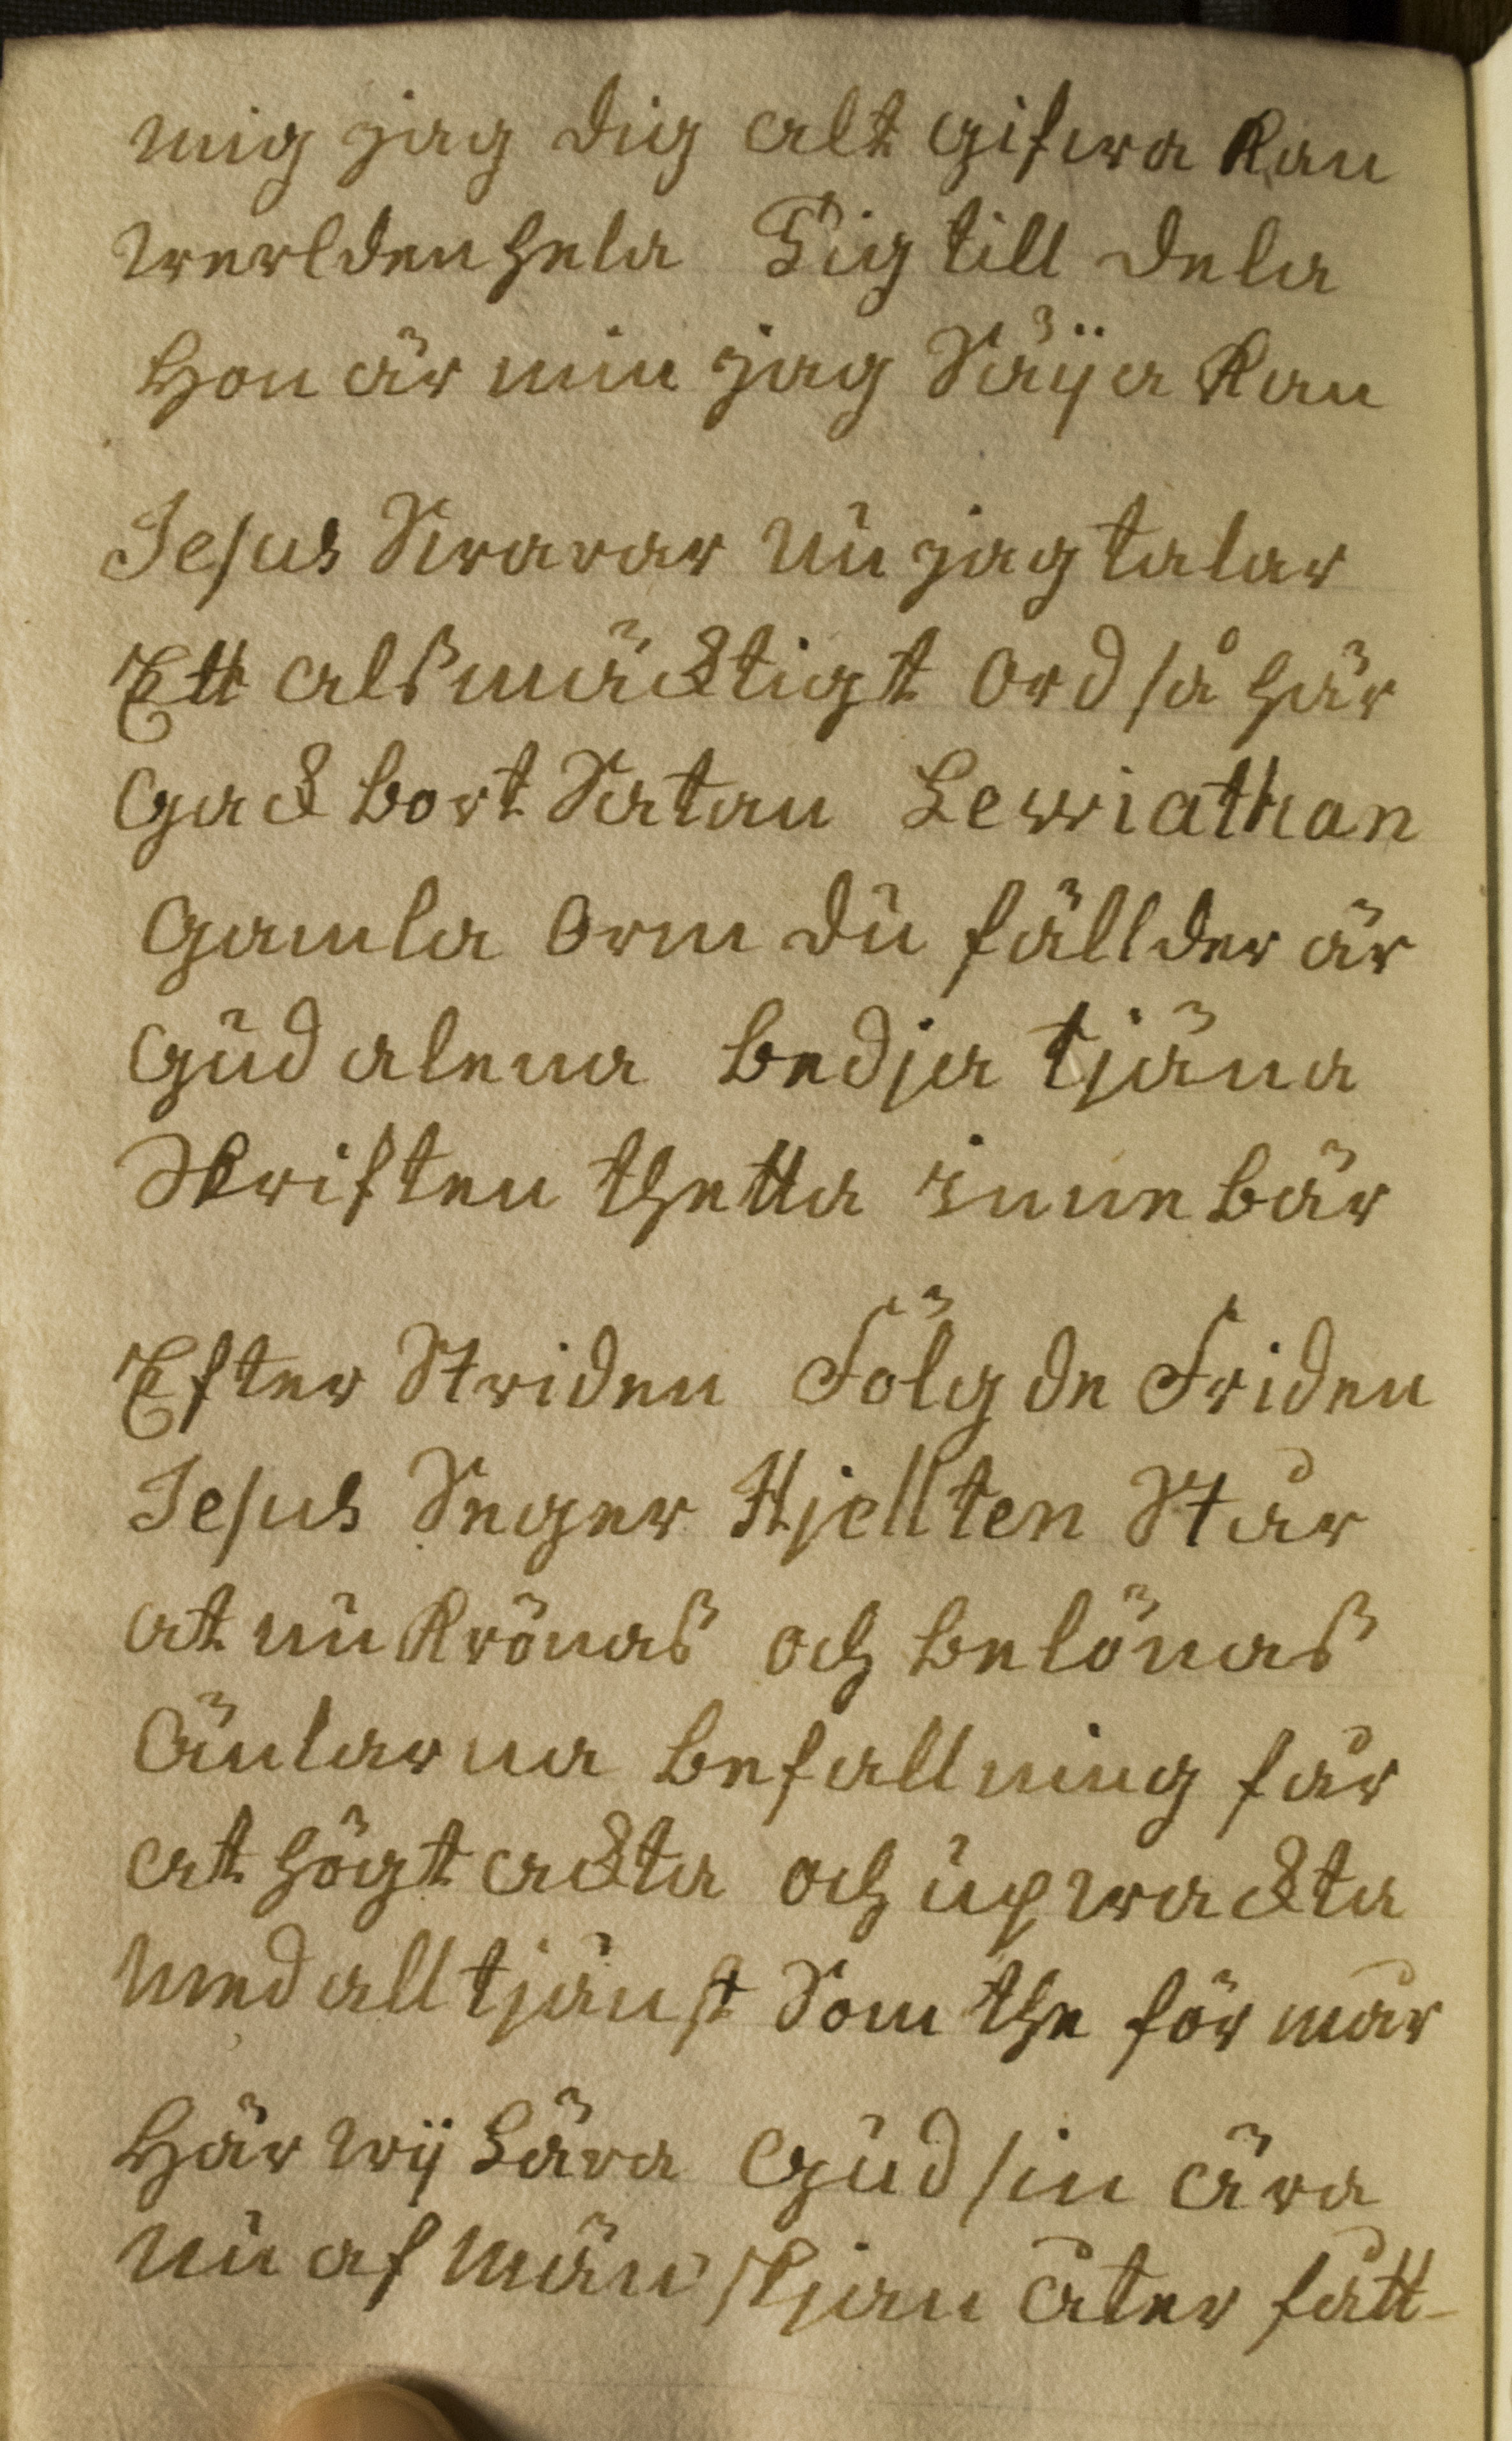 mig jag dig alt gifwa kan
werlden hela Tig till dela
Hon är min jag Säija kan
Jesus Swarar nu jag talar
Ett alsmäcktigt ord så här
Gack bort Satan Lewiathan
Gamla Orm du fällder är
Gud alena bedja tjäna
Skriften thetta innebär
Efter Striden Fölgde Friden
Jesus Seger Hjellten Står
at nu krönas och belönas
Änlarna befallning får
at högt ackta och upwackta
med all tjänst Som the för mår
Här wij Lära Gud sin ära
nu af Mänskjan åter fått